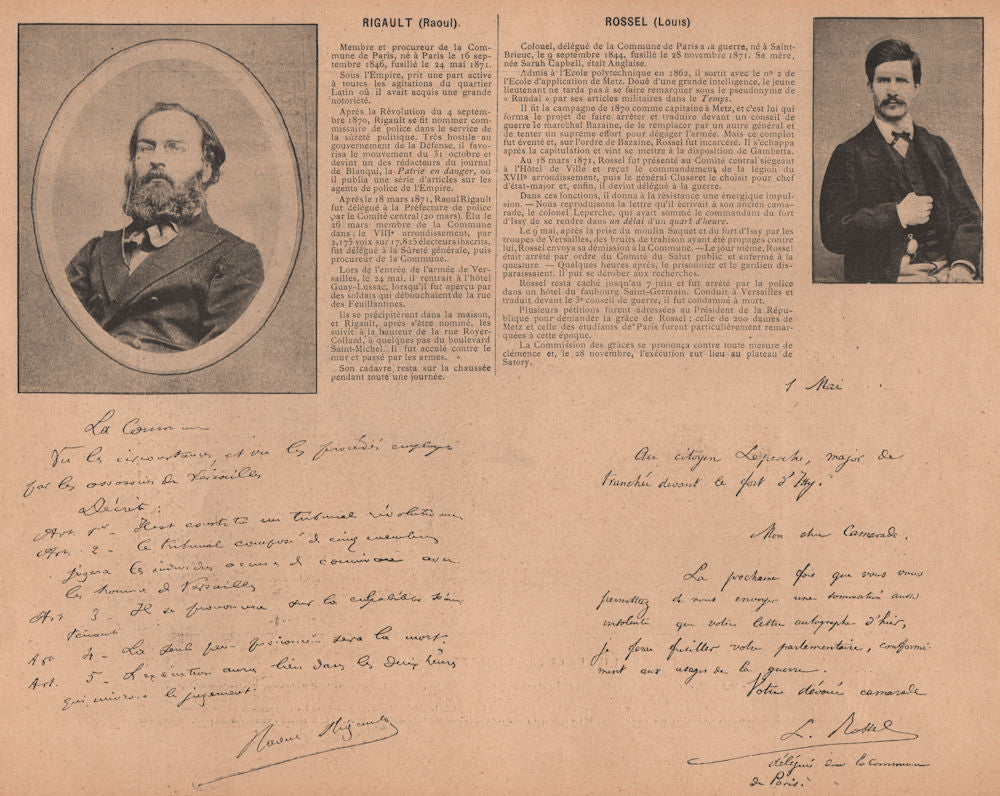 RIGAULT (Raoul).
Membre et procureur de la Com-
mune de Paris, né à Paris le 16 sep-
tembre 1846, fusillé le 24 mai 1871.
Sous l'Empire, prit une part active
à toutes les agitations du quartier
Latin où il avait acquis une grande
notoriété.
Après la Révolution du 4 septem-
bre 1870, Rigault se fit nommer com-
missaire de police dans le service de
la sûreté politique. Très hostile au
gouvernement de la Défense, il favo-
risa le mouvement du 31 octobre et
devint un des rédacteurs du journal
de Blanqui, la Patrie en danger, où
il publia une série d'articles sur les
agents de police de l'Empire.
Après le 18 mars 1871, Raoul Rigault
fut délégué à la Préfecture de police
par le Comité central (20 mars). Élu le
26 mars membre de la Commune
dans le VIIIe arrondissement, par
2,175 voix sur 17,825 électeurs inscrits,
fut délégué à la Sûreté générale, puis
procureur de la Commune.
Lors de l'entrée de l'armée de Ver-
sailles, le 24 mai, il rentrait à l'hôtel
Guay-Lussac, lorsqu'il fut aperçu par
des soldats qui débouchaient de la rue
des Feuillantines.
Ils se précipitèrent dans la maison,
et Rigault, après s'être nommé, les
suivit à la hauteur de la rue Royer-
Collard, à quelques pas du boulevard
Saint-Michel. Il fut acculé contre le
mur et passé par les armes.
Son cadavre resta sur la chaussée
pendant toute une journée.
ROSSEL (Louis)
Colonel, délégué de la Commune de Paris à la guerre, né à Saint-
Brieuc, le 9 septembre 1844, fusillé le 28 novembre 1871. Sa mère,
née Sarah Capbell, était Anglaise.
Admis à l'Ecole polytechnique en 1862, il sortit avec le no 2 de
l'Ecole d'application de Metz. Doué d'une grande intelligence, le jeune
lieutenant ne tarda pas à se faire remarquer sous le pseudonyme de
« Randal » par ses articles militaires dans le Temps.
Il fit la campagne de 1870 comme capitaine à Metz, et c'est lui qui
forma le projet de faire arrêter et traduire devant un conseil de
guerre le maréchal Bazaine, de le remplacer par un autre général et
de tenter un suprême effort pour dégager l'armée. Mais ce complot
fut éventé et, sur l'ordre de Bazaine, Rossel fut incarcéré. Il s'échappa
après la capitulation et vint se mettre à la disposition de Gambetta.
Au 18 mars 1871, Rossel fut présenté au Comité central siégeant
à l'Hôtel de Ville et reçut le commandement de la légion du
XVIIe arrondissement, puis le général Cluseret le choisit pour chef
d'état-major et, enfin, il devint délégué à la guerre.
Dans ces fonctions, il donna à la résistance une énergique impul-
sion. — Nous reproduisons la lettre qu'il écrivait à son ancien cama-
rade, le colonel Leperche, qui avait sommé le commandant du fort
d'Issy de se rendre dans un délai d'un quart d'heure.
Le 9 mai, après la prise du moulin Saquet et du fort d'Issy par les
troupes de Versailles, des bruits de trahison ayant été propagés contre
lui, Rossel envoya sa démission à la Commune. — Le jour même, Rossel
était arrêté par ordre du Comité du Salut public et enfermé à la
questure. — Quelques heures après, le prisonnier et le gardien dis-
paraissaient. Il put se dérober aux recherches.
Rossel resta caché jusqu'au 7 juin et fut arrêté par la police
dans un hôtel du faubourg Saint-Germain. Conduit à Versailles et
traduit devant le 3e conseil de guerre, il fut condamné à mort.
Plusieurs pétitions furent adressées au Président de la Répu-
blique pour demander la grâce de Rossel : celle de 200 dames de
Metz et celle des étudiants de Paris furent particulièrement remar-
quées à cette époque.
La Commission des grâces se prononça contre toute mesure de
clémence et, le 28 novembre, l'exécution eut lieu au plateau de
Satory.
La Commune
Vu les circonstances et vu les procédés employés
par les assassins de Versailles
Décrète :
Art. 1er - Il est constitué un tribunal révolutionn
Art. 2 - Ce tribunal composé de cinq membres
jugera les individus accusés de connivence avec
les hommes de Versailles
Art 3 - Il se prononcera sur la culpabilité séance
tenante
Art 4 - La seule peine prononcée sera la mort.
Art. 5 - L'exécution aura lieu dans les deux heures
qui suivront le jugement.
Raoul Rigault
1 Mai
Au citoyen Leperche, major de
tranchée devant le fort d'Issy.
Mon cher Camarade.
La prochaine fois que vous vous
permettrez de nous envoyer une sommation aussi
insolente que votre lettre autographe d'hier,
je ferai fusiller votre parlementaire, conformé-
ment aux usages de la guerre.
Votre dévoué camarade
L. Rossel
délégué de la Commune
de Paris.